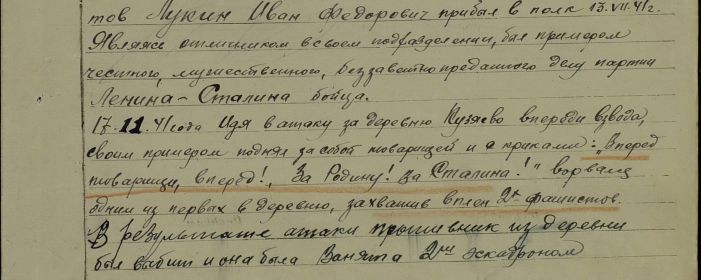 тов Лукин Иван Федорович прибыл в полк 13.VII.41г.
Являясь отличником в своем подразделении, был примером
честного, мужественного, беззаветно преданного делу партии
Ленина-Сталина бойца.
17.11.41 года Идя в атаку за деревню Кузяево впереди взвода,
своим примером поднял за собой товарищей и с криками: „Вперед
товарищи, вперед!, За Родину! За Сталина!" ворвался
одним из первых в деревню, захватив в плен 2х фашистов.
В результате атаки противник из деревни
был выбит и она была Занята 2ым эскадроном